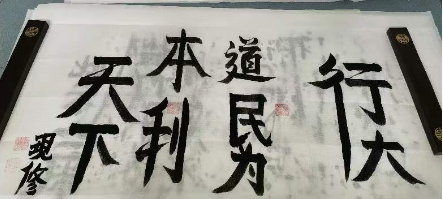 行大
道民为
本利
天下
觋修